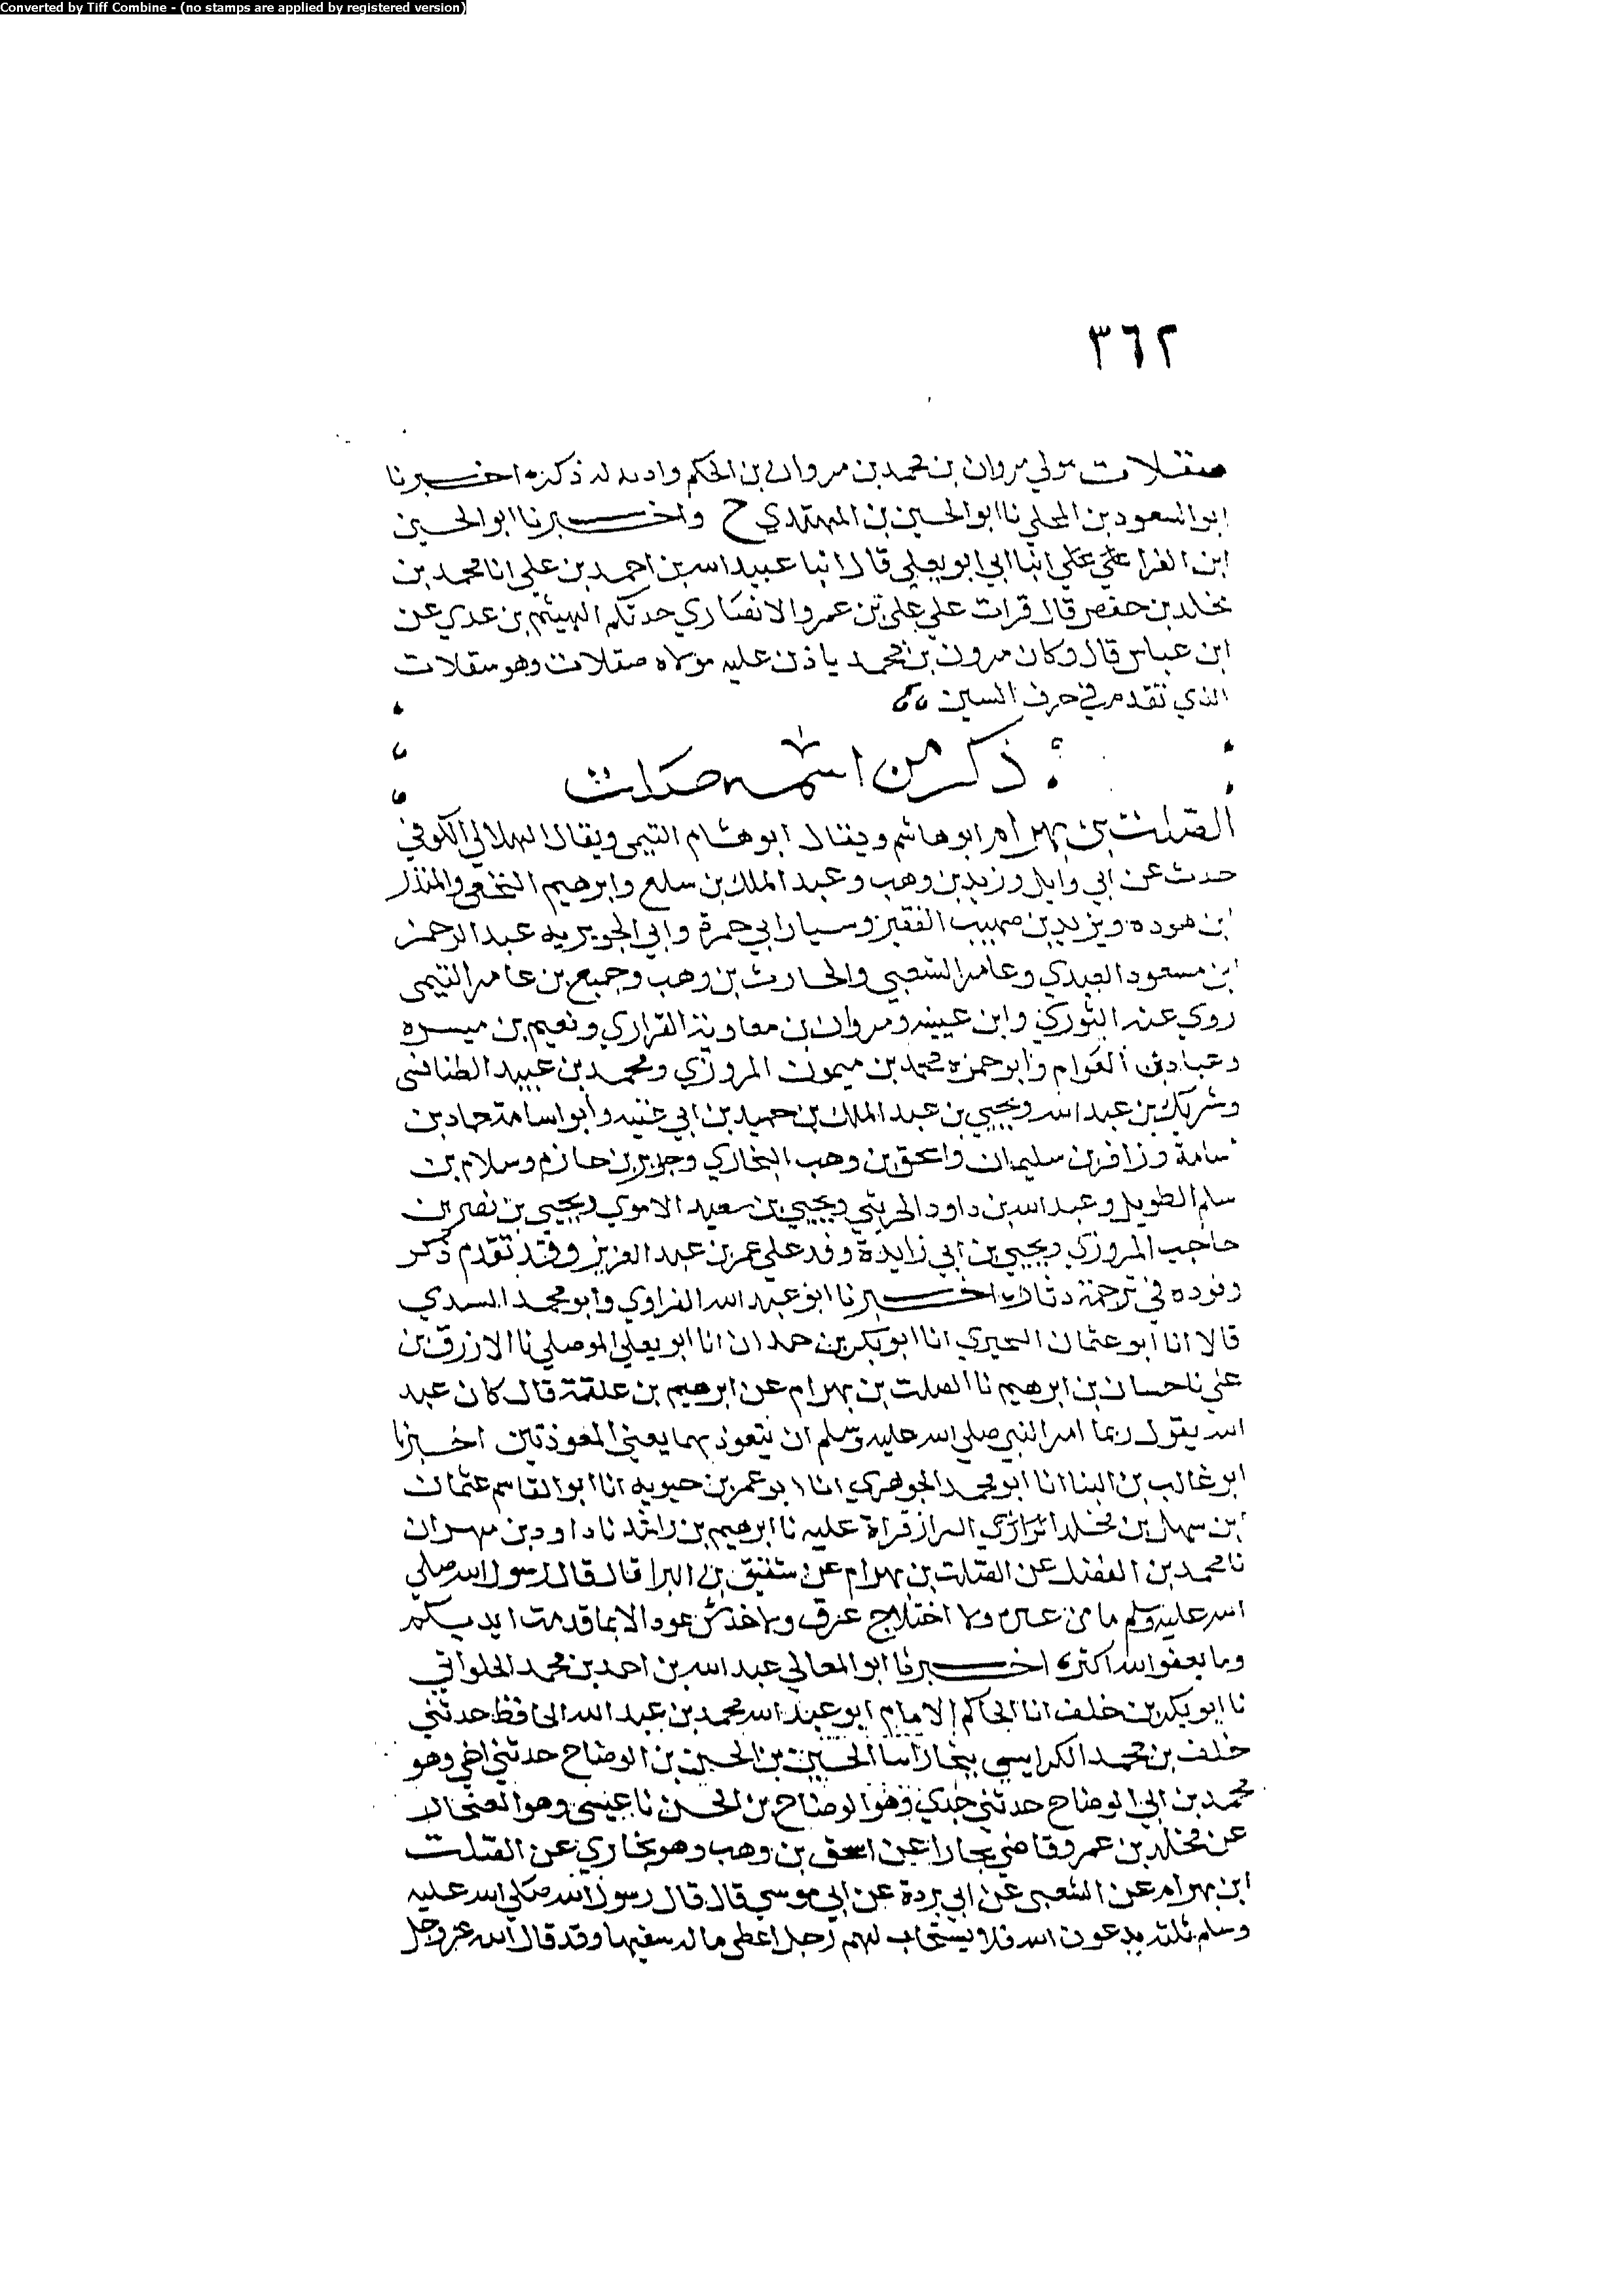 Converted by Tiff Combine - (no stamps are applied by registered version)
٣٦٢
صقلات مولي مروان بن محمد بن مروان بن الحكم له ذكر اخبرنا
ابو السعود بن المجلي نا ابو الحسين بن المهتدي ح واخبرنا ابو الحسين
ابن الفرا انبا ابي ابو يعلي قالا انبا عبيد الله بن احمد بن علي انا محمد بن
مخلد بن حفص قال قرات علي علي بن عمرو الانصاري حدثكم الهيثم بن عدي عن
ابن عباس قال وكان مرون بن محمد ياذن عليه مولاه صقلات وهو سقلات
الذي تقدم في حرف السين
ذكر من اسمه صلت
الصلت بن بهرام ابو هاشم ويقال ابو هشام التيمي ويقال الهلالي الكوفي
حدث عن ابي وايل وزيد بن وهب وعبد الملك بن سلع وابرهيم النخعي والمنذر
ابن هوده ويزيد بن صهيب الفقير وسيار ابي حمزة وابي الجويريه عبد الرحمن
ابن مسعود العبدي وعامر الشعبي والحارث بن وهب وجميع بن عامر التيمي
روي عنه الثوري وابن عيينه ومروان بن معاوية الفزاري ونعيم بن ميسره
وعباد بن العوام وابو حمزه محمد بن ميمون المروزي ومحمد بن عبيد الطنافسي
وشريك بن عبد الله ويحيي بن عبد الملك بن حميد بن ابي غنيه وابو اسامة حماد بن
سامة وزافر بن سليمان واسحق بن وهب البخاري وجرير بن حازم وسلام بن
سلم الطويل وعبد الله بن داود الخريبي ويحيي بن سعيد الاموي ويحيي بن نصر بن
حاجب المروزي ويحيي بن ابي زايدة وفد علي عمر بن عبد العزيز وقد تقدم ذكر
وفوده في ترجمة دثار اخبرنا ابو عبد الله الفراوي وابو محمد السيدي
قالا انا ابو عثمان البحيري انا ابو بكر بن حمدان انا ابو يعلي الموصلي نا الازرق بن
علي نا حسان بن ابرهيم نا الصلت بن بهرام عن ابرهيم بن علقمة قال كان عبد
الله يقول ربما امر النبي صلي الله عليه وسلم ان يتعوذ بهما يعني المعوذتين اخبرنا
ابو غالب بن البنا انا ابو محمد الجوهري انا ابو عمر بن حيويه انا ابو القاسم عثمان
ابن سهل بن مخلد البزاز قراة عليه نا ابرهيم بن راشد نا داود بن مهران
نا محمد بن الفضل عن الصلت بن بهرام عن شقيق بن البرا قال قال رسول الله صلي
الله عليه وسلم ما من ولا اختلاج عرق ولا خدش عود الا بما قدمت ايديكم
وما يعفو الله اكثر اخبرنا ابو المعالي عبد الله بن احمد بن محمد الحلواني
نا ابو بكر بن خلف انا الحاكم الامام ابو عبد الله محمد بن عبد الله الحافظ حدثني
خلف بن محمد الكرابيسي ببخارا نا الحسين بن الحسن بن الوضاح حدثني اخي وهو
محمد بن ابي الوضاح حدثني جدي وهو الوضاح بن الحسن نا عيسي وهو الغنجار
عن مخلد بن عمرو قاضي بخارا عن اسحق بن وهب وهو بخاري عن الصلت
ابن بهرام عن الشعبي عن ابي بردة عن ابي موسي قال قال رسول الله صلي الله عليه
وسلم ثلثه يدعون الله فلا يستجاب لهم رجل اعطي ماله سفيها وقد قال الله عز وجل